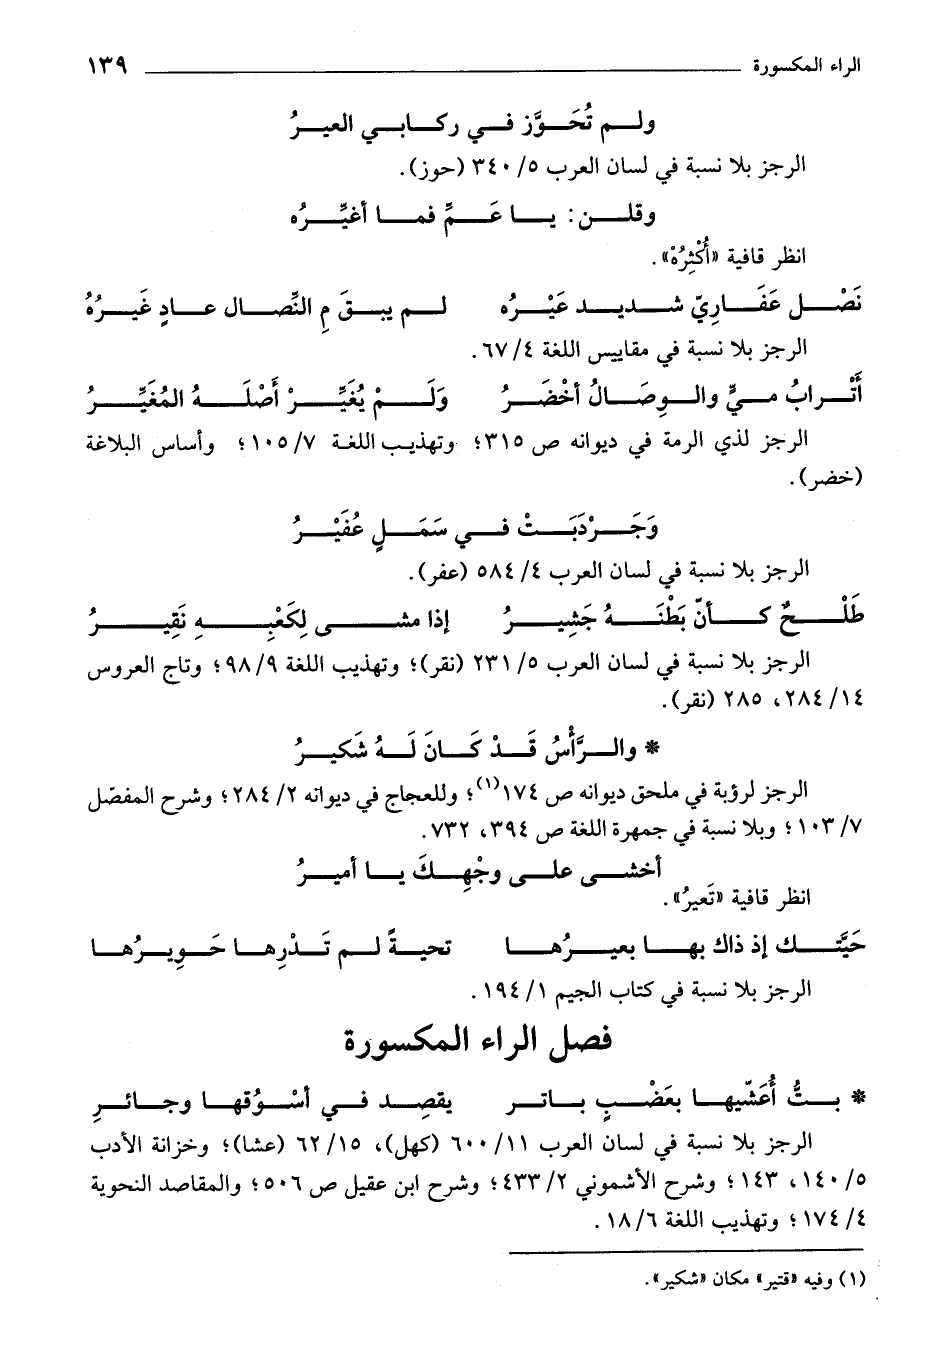 الراء المكسورة ١٣٩
ولم تُحَوَّز في ركابي العيرُ
الرجز بلا نسبة في لسان العرب ٥/ ٣٤٠ (حوز).
وقلن: يا عَمِّ فما أغيِّرُه
انظر قافية «أُكْثِرُهْ».
نَصْل عَفَاريّ شديد عَيْرُه لم يبقَ مِ النِّصال عادٍ غَيرُهُ
الرجز بلا نسبة في مقاييس اللغة ٤/ ٦٧.
أَتْرابُ ميٍّ والوِصَالُ أخْضَرُ وَلَمْ يُغَيِّرْ أَصْلَهُ المُغَيِّرُ
الرجز لذي الرمة في ديوانه ص ٣١٥؛ وتهذيب اللغة ٧/ ١٠٥؛ وأساس البلاغة
(خضر).
وَجَرْدَبَتْ في سَمَلٍ عُفَيْرُ
الرجز بلا نسبة في لسان العرب ٤/ ٥٨٤ (عفر).
طَلْحٌ كأنّ بَطْنَهُ جَشِيرُ إذا مشى لِكَعْبِهِ نَقِيرُ
الرجز بلا نسبة في لسان العرب ٥/ ٢٣١ (نقر)؛ وتهذيب اللغة ٩/ ٩٨؛ وتاج العروس
١٤/ ٢٨٤، ٢٨٥ (نقر).
* والرَّأْسُ قَدْ كَانَ لَهُ شَكيرُ
الرجز لرؤبة في ملحق ديوانه ص ١٧٤(١)؛ وللعجاج في ديوانه ٢/ ٢٨٤؛ وشرح المفصّل
٧/ ١٠٣؛ وبلا نسبة في جمهرة اللغة ص ٣٩٤، ٧٣٢.
أخشى على وجْهِكَ يا أميرُ
انظر قافية «تَعيرُ».
حَيَّتك إذ ذاك بها بعيرُها تحيةً لم تَدْرِها حَويرُها
الرجز بلا نسبة في كتاب الجيم ١/ ١٩٤.
فصل الراء المكسورة
* بتُّ أُعَشّيها بعَضْبٍ باتر يقصِد في أسْوُقها وجائرِ
الرجز بلا نسبة في لسان العرب ١١/ ٦٠٠ (كهل)، ١٥/ ٦٢ (عشا)؛ وخزانة الأدب
٥/ ١٤٠، ١٤٣؛ وشرح الأشموني ٢/ ٤٣٣؛ وشرح ابن عقيل ص ٥٠٦؛ والمقاصد النحوية
٤/ ١٧٤؛ وتهذيب اللغة ٦/ ١٨.
(١) وفيه «قتير» مكان «شكير».